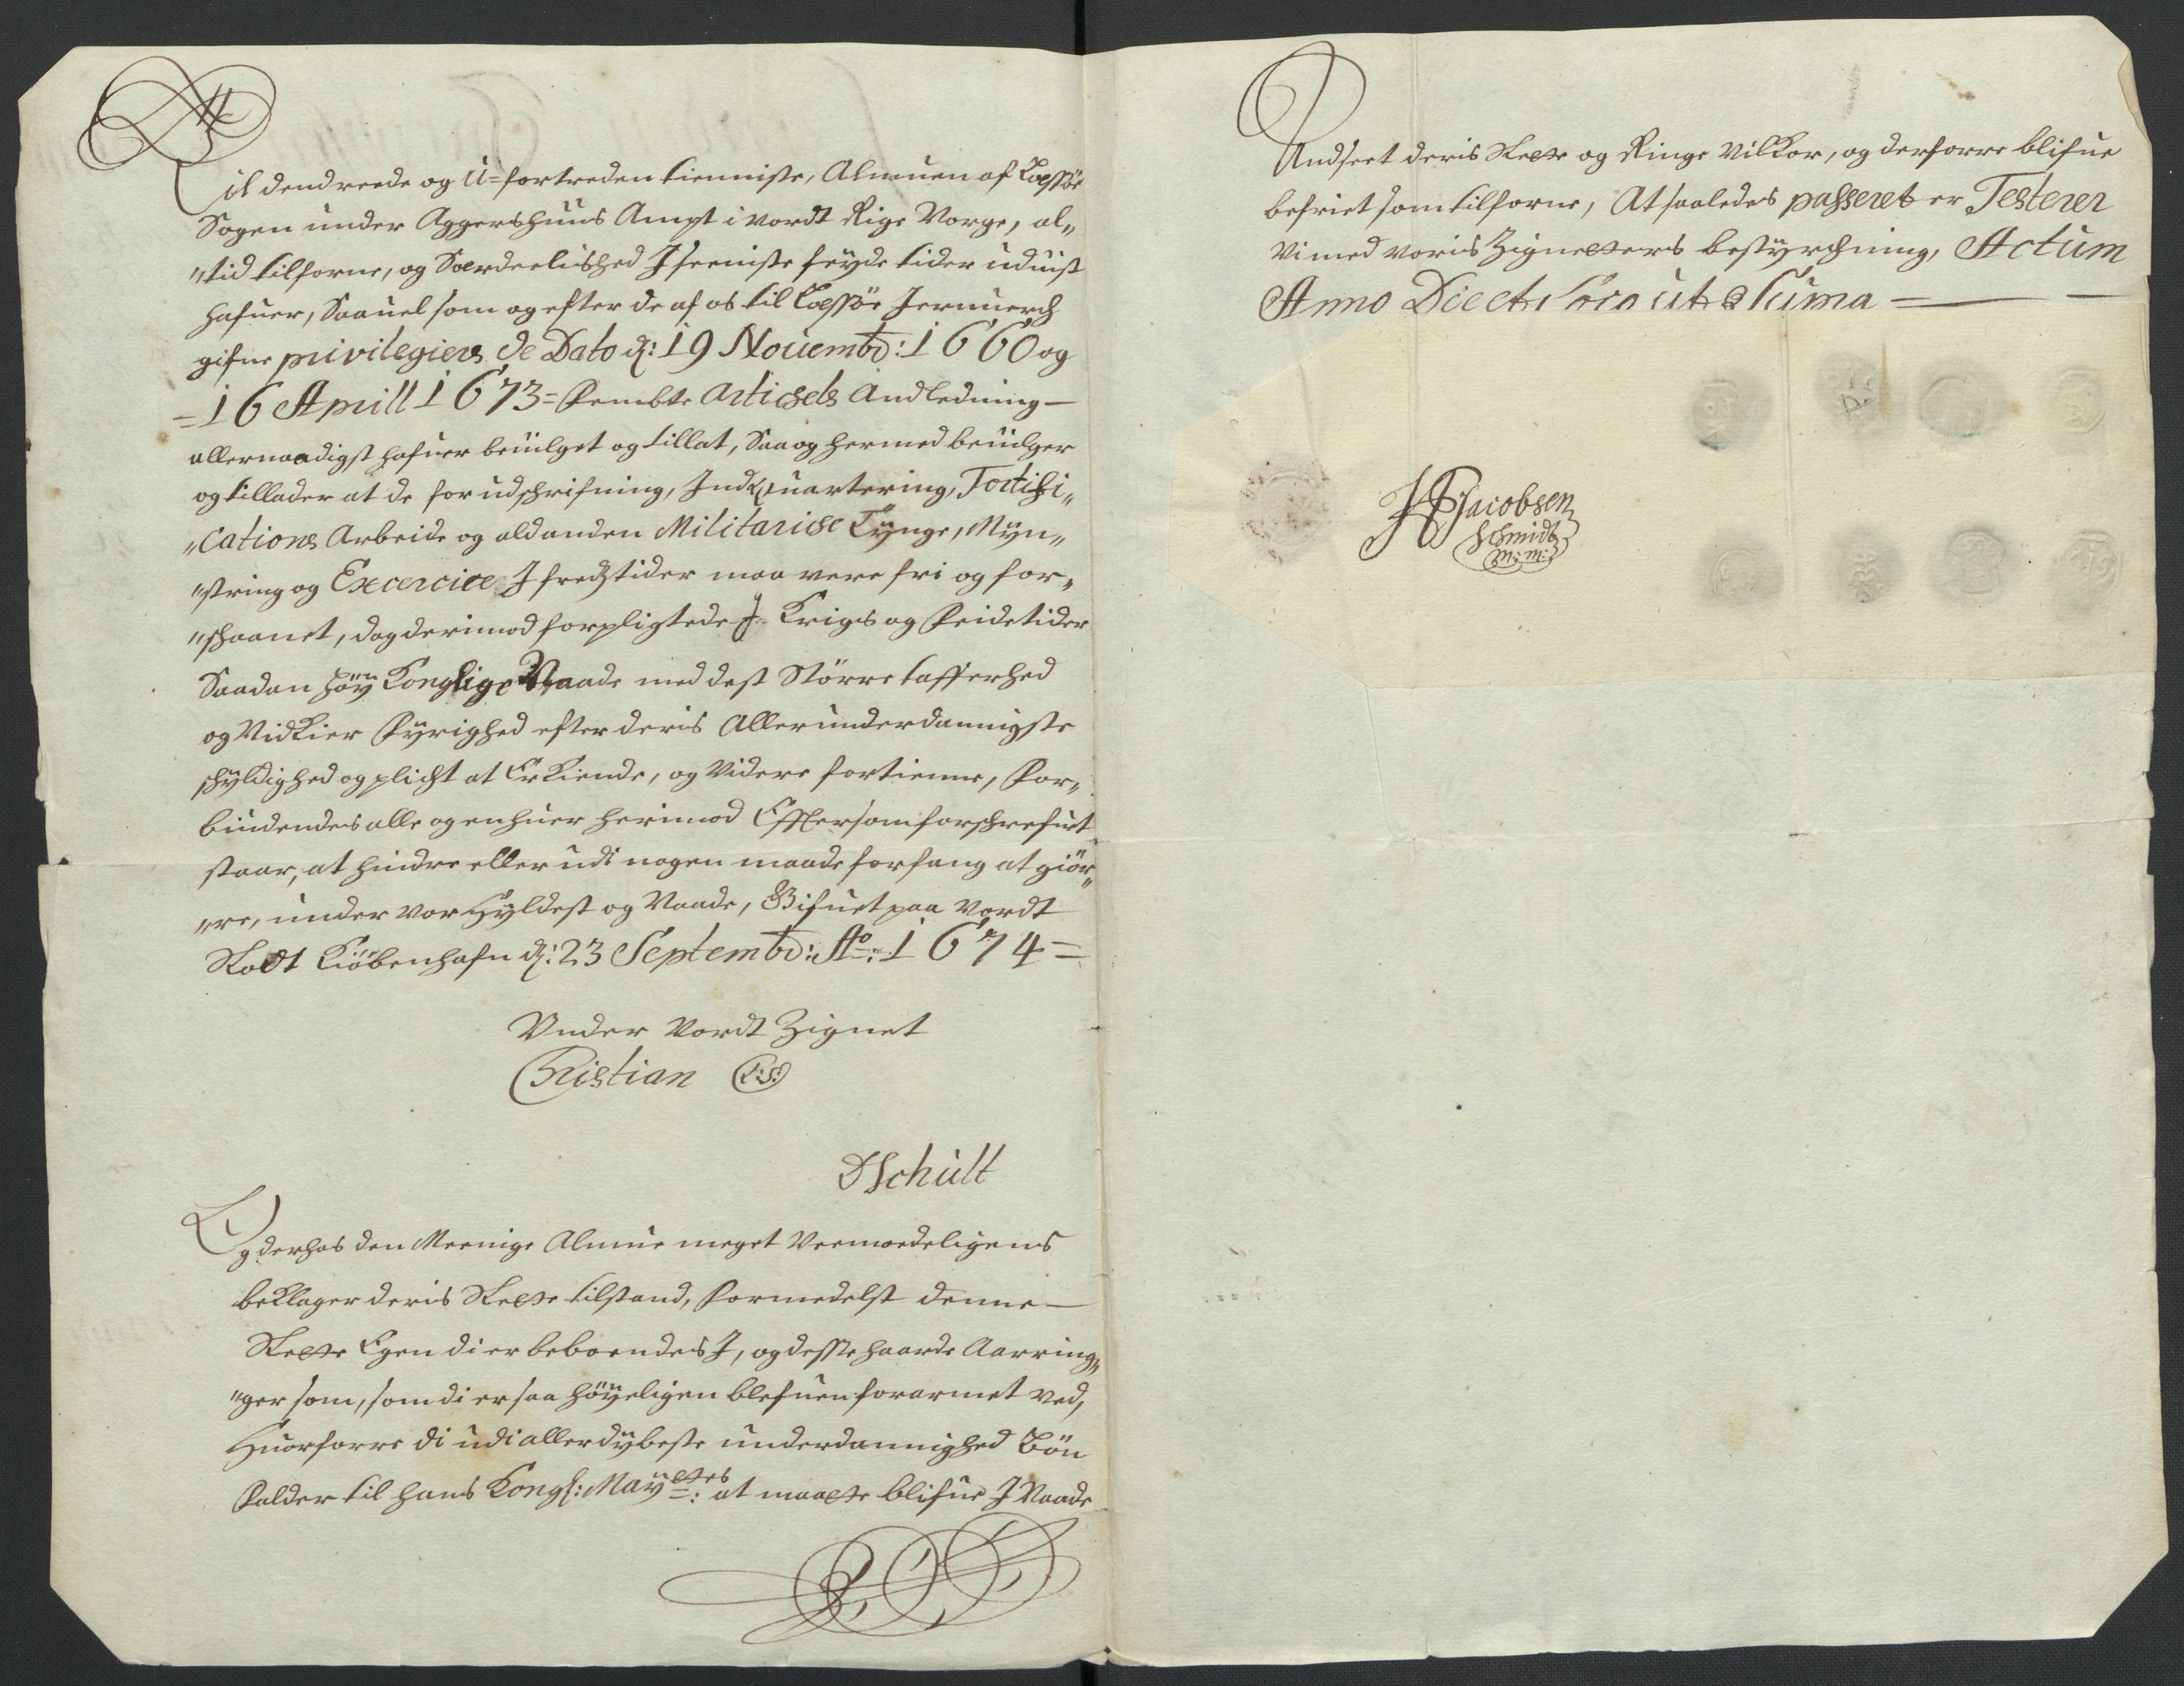 Til dend reede og U-fortreden tienniste, Almuen af Boessøe
Sogen under Aggershuus Ampt i vordt Rige Norge, al„
„tid tilforne, og Særdeelished J seeniste feyde tider uduist
hafuer, Saauel som og efter de af os til Boessøe Jernuerch
gifne privilegiers de Dato d: 19 Novembr: 1660 og
= 16 Aprill 1673 = Fembte Articsels Andledning —
allernaadigst hafuer beuilget og tillat, Saa og hermed beuilger
og tillader at de for udschrifning, Indquartering, Fortifi„
„Cations Arbeide og ald anden Militarisc Tynge, Mÿn„
„string og Excercice J fredstider maa vere fri og for„
„schaanet, dog derimod forpligtede J Krigs og Feidetider
Saadan höÿ Konglige Naade med dest Större tafferhed
og Nidkier Fÿrighed efter deris Allerunderdannigste
schÿldighed og plicht at Erkiende, og Videre fortienne, For„
biudendes alle og enhuer herimod Efftersom forschrefuet
staar, at hindre eller udi nogen maade forfang at giör„
„re, under vor Hÿldest og Naade, Gifuet paa vordt
Slodt Kiöbenhafn d: 23 Septembr: Ao: 1674 =
Under Vordt Zignet
Christian (L:S:)
DSchult
Og derhos den Meenige Almue meget Veemodeligens
beklager deris Slette tilstand, formedelst denne —
Slette Egen di er beboendes J, og desse haarde Aarring„
„ger som, som di er saa höÿeligen blefuen forarmet ved,
Huorforre di udi allerdÿbeste underdannighed Bön
falder til hans Kongl: Maÿettes: at maatte blifue J Naade
Andseet deris Slette og Ringe Vilkor, og derforre blifue
befriet som tilforne, At saaledes passeret er Testerer
Vi med voris Zignetters bestÿrchning, Actum
Anno Die et Loco ut Supra =
HPJacobsen
Schmidt
M: m: